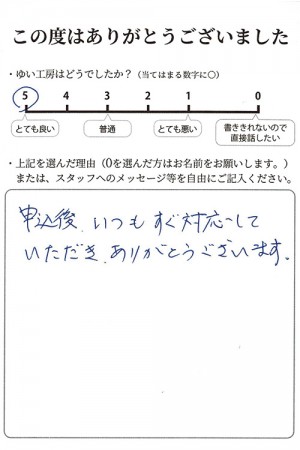 この度はありがとうございました
・ゆい工房はどうでしたか？（当てはまる数字に○）
5 4 3 2 1 0
とても良い 普通 とても悪い 書ききれないので直接話したい
・上記を選んだ理由（0を選んだ方はお名前をお願いします。）
または、スタッフへのメッセージ等を自由にご記入ください。
申込後、いつもすぐ対応して
いただき、ありがとうございます。